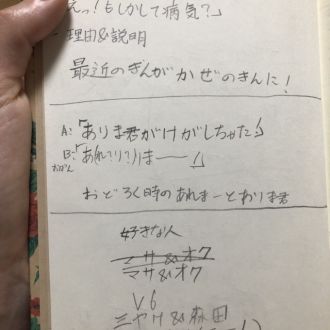 えっ!もしかして病気?」
理由&説明
最近のきんがかぜのきんに!
A:「ありま君がけがしちゃた」
B:「あれ?り?)ま――!」
おどろく時のあれまーとありま君
好きな人
マサ&オク
マサ&オク
V6
ミヤケ&森田